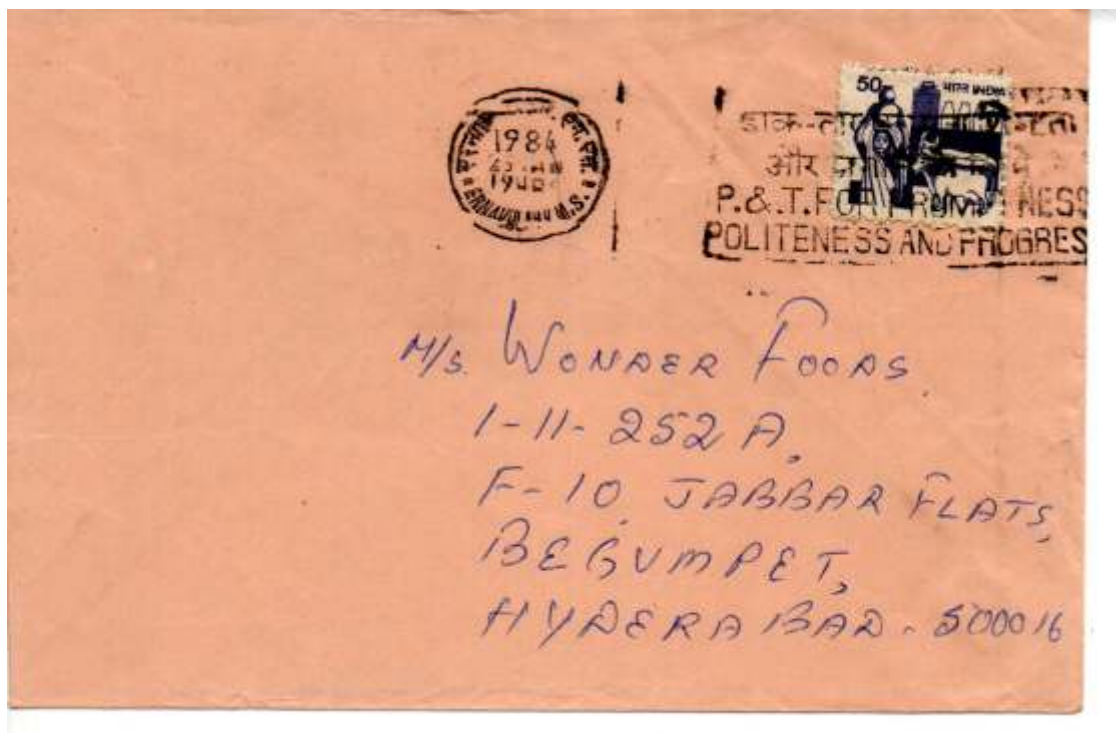 1984
R.M.S.
50 भारत INDIA
डाक-तार
और
P.&.T.FOR PROMPTNESS
POLITENESS AND PROGRES
M/s. WONDER FOODS
1-11-252 A,
F-10, JABBAR FLATS,
BEGUMPET,
HYDERABAD - 500016